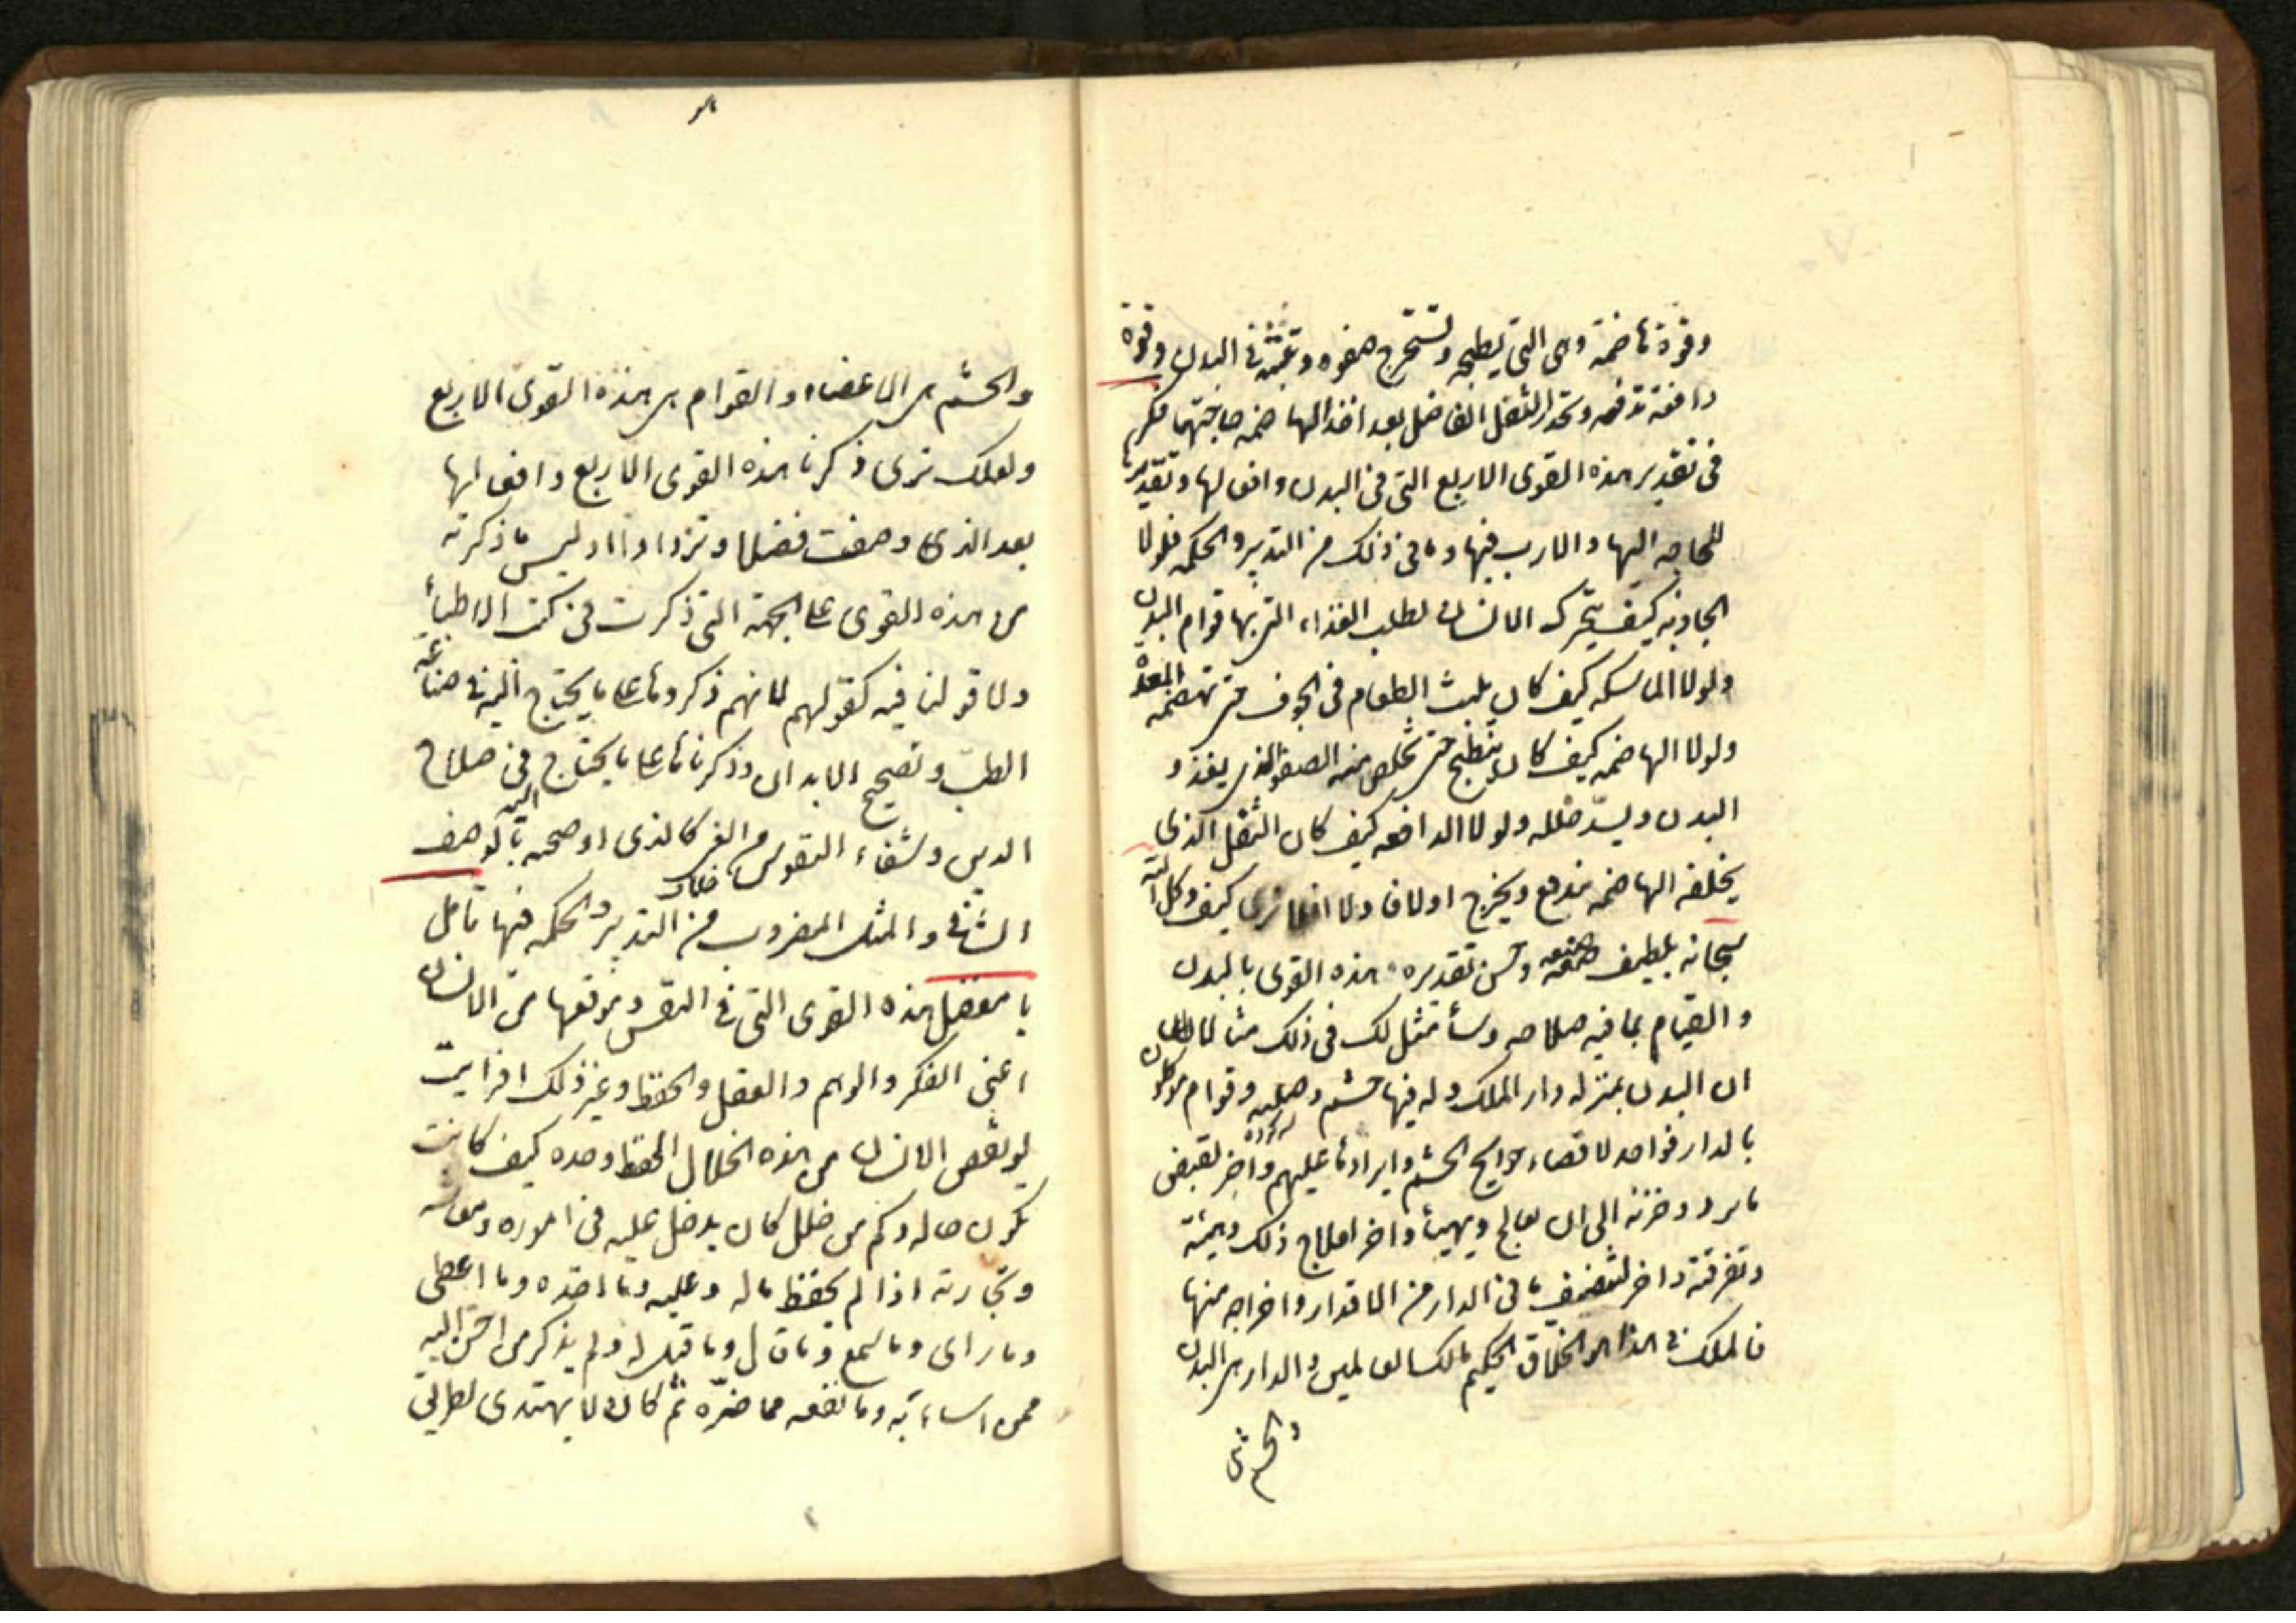 وقوة هاضمة وهى التى يطبخه وتستخرج صفوه وتبثه فى البدن وقوة
دافعة تدفعه وتحدر الثفل الفاضل بعد اخذ الهاضمه حاجتها ففكر
فى تقدير هذه القوى الاربع التى فى البدن وافعالها وتقديرها
للحاجه اليها والارب فيها وما فى ذلك من التدبير والحكمه فلولا
الجاذبه كيف يتحرك الانسان لطلب الغذاء التى بها قوام البدن
ولولا الماسكه كيف كان يلبث الطعام فى الجوف حتى تهضمه المعدة
ولولا الهاضمه كيف كان ينطبخ حتى تخلص منه الصفو الذى يغذو
البدن ويسدّ خلله ولولا الدافعه كيف كان الثفل الذى
يخلفه الهاضمه يندفع ويخرج اولا فاولا افلا ترى كيف وكل الله
سبحانه بلطيف صنعه وحسن تقديره هذه القوى بالبدن
والقيام بما فيه صلاحه وسأمثل لك فى ذلك مثالا
ان البدن بمنزله دار الملك وله فيها حشم وصبيه وقوام موكلون
بالدار فواحد لاقضاء حوايج الحشم وايرادها عليهم واخر لقبض
ما يرد وخزنه الى ان يعالج ويهيأ واخر لعلاج ذلك وتهيئة
وتفرقته واخر لتنضيف ما فى الدار من الاقدار واخراجه منها
فالملك فى هذا هو الخلاق الحكيم مالك العالمين والدار هى البدن
والحشم
والحشم هى الاعضاء والقوام هى هذه القوى الاربع
ولعلك ترى ذكرنا هذه القوى الاربع وافعالها
بعد الذى وصفت فضلا وتزدادا وليس ما ذكرته
من هذه القوى على الجهة التى ذكرت فى كتب الاطباء
ولا قولنا فيه كقولهم لانهم ذكروها على ما يحتاج اليه فى صناعة
الطبّ وتصحيح الابدان وذكرناها على ما يحتاج فى صلاح
الدين وشفاء النفوس من الغى كالذى اوضحته بالوصف
الشافى والمثل المضروب من التدبير والحكمه فيها تامل
يا مفضل هذه القوى التى فى النفس وموقعها من الانسان
اعنى الفكر والوهم والعقل والحفظ وغير ذلك افرايت
لو نقص الانسان من هذه الخلال الحفظ وحده كيف كانت
تكون حاله وكم من خلل كان يدخل عليه فى اموره ومعاشه
وتجارته اذا لم يحفظ ماله وعليه وما اخذه وما اعطى
وما راى وما سمع وما قال وما قيل له ولم يذكر من احسن اليه
ممن اساء به وما نفعه مما ضرّه ثم كان لا يهتدى لطريق